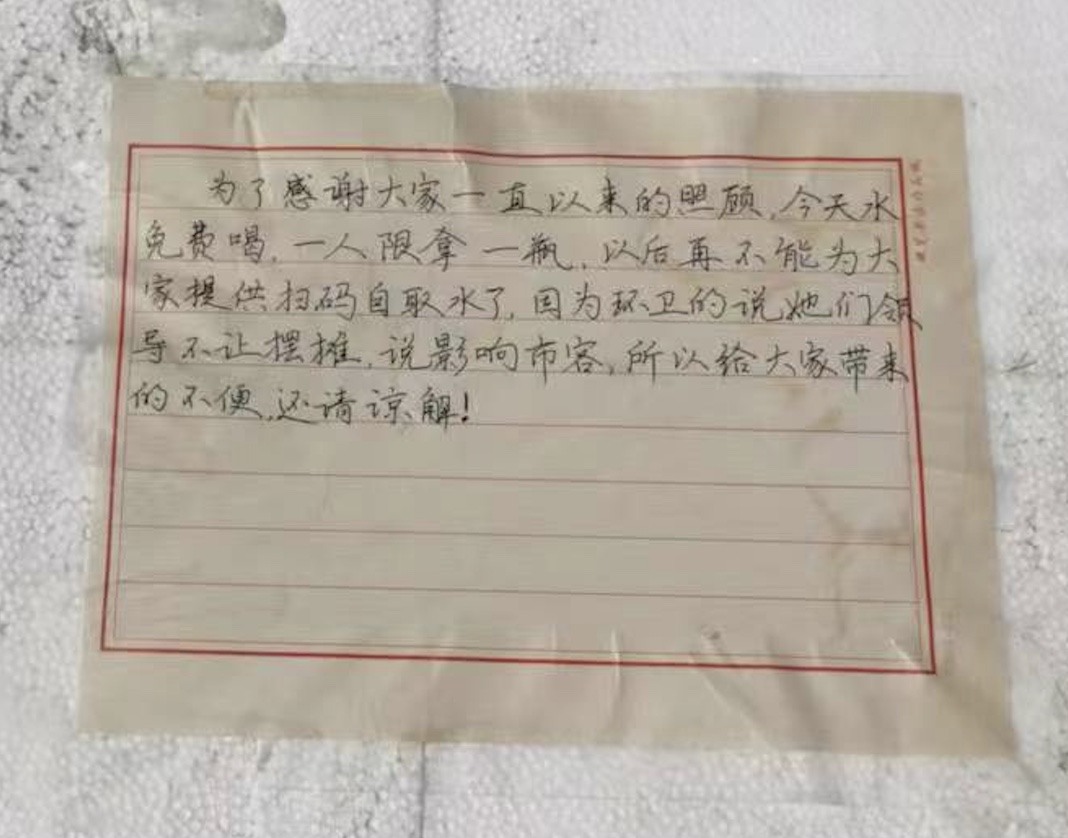 为了感谢大家一直以来的照顾,今天水
免费喝,一人限拿一瓶,以后再不能为大
家提供扫码自取水了,因为环卫的说她们领
导不让摆摊,说影响市容,所以给大家带来
的不便,还请谅解!